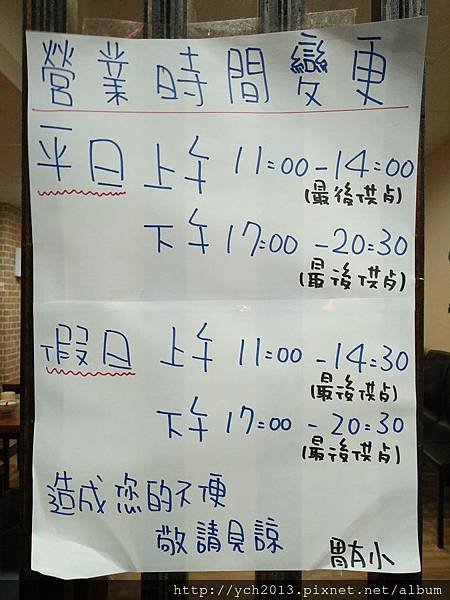 營業時間變更
平日 上午 11:00-14:00
(最後供点)
下午 17:00-20:30
(最後供点)
假日 上午 11:00-14:30
(最後供点)
下午 17:00-20:30
(最後供点)
造成您的不便
敬請見諒
http://ych2013.pixnet.net/album